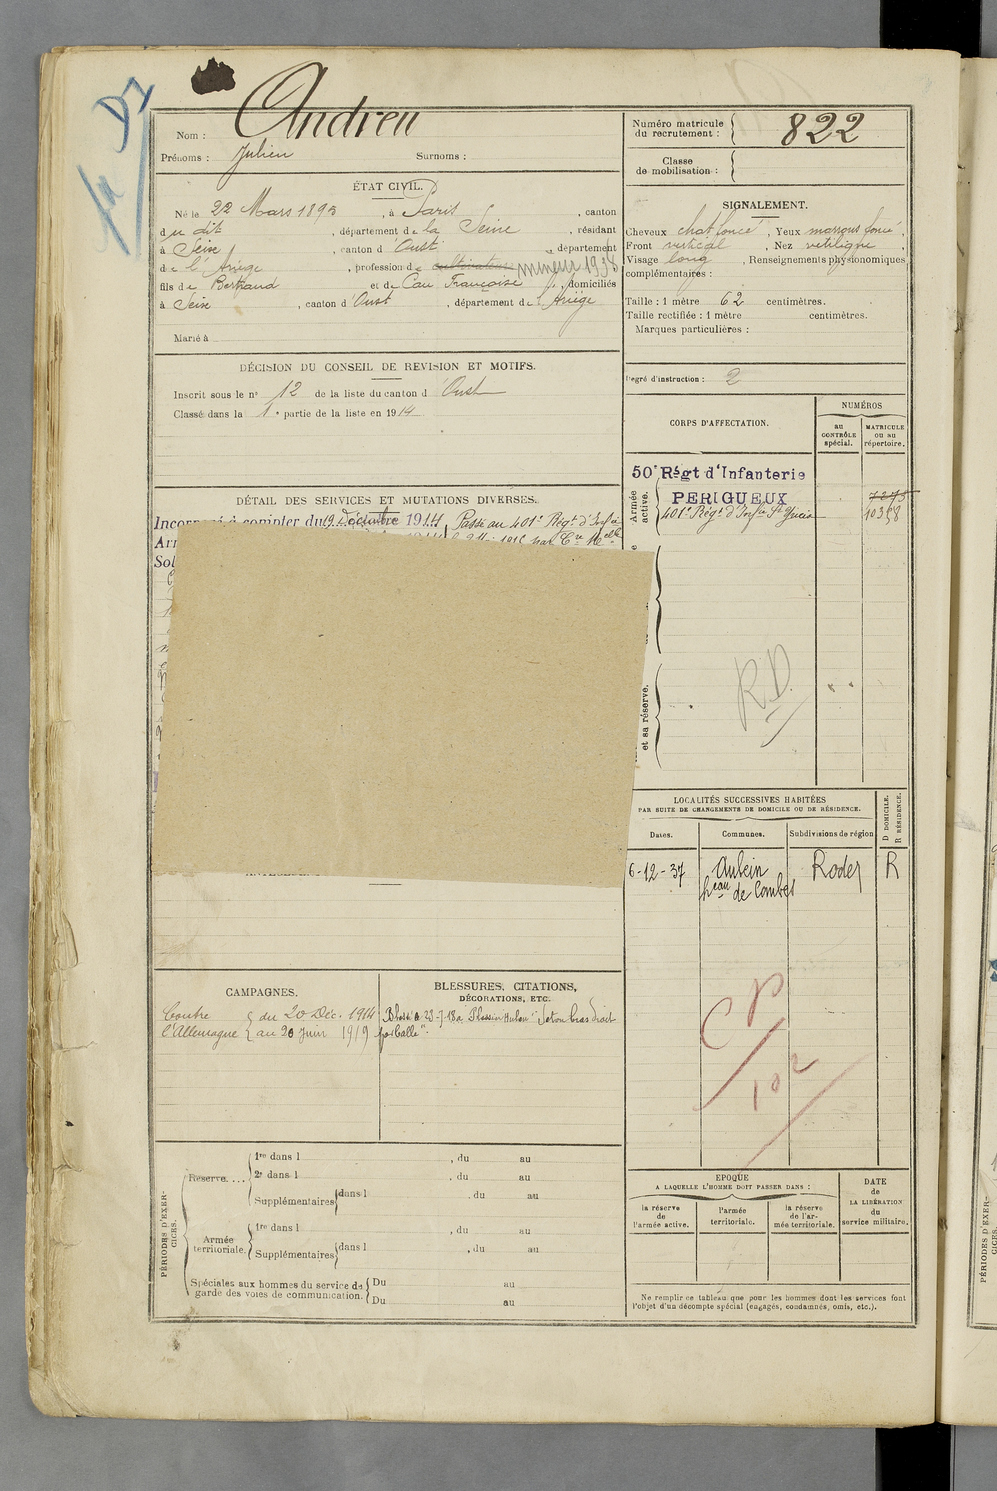 Andreu
Nom :
Prénoms : Julien Surnoms :
ÉTAT CIVIL.
Né le 22 Mars 1895, à Paris, canton
du dit, département de la Seine, résidant
à Seix, canton d'Oust, département
de l'Ariège, profession de cultivateur mineur 1938
fils de Bertrand et de Cau Françoise, domiciliés
à Seix, canton d'Oust, département de l'Ariège
Marié à
DÉCISION DU CONSEIL DE REVISION ET MOTIFS.
Inscrit sous le n° 12 de la liste du canton d'Oust
Classé dans la 1e partie de la liste en 1914
DÉTAIL DES SERVICES ET MUTATIONS DIVERSES.
à compter du 19 Décembre 1914 Passé au 401e Régt d'Infie
CAMPAGNES.
Contre l'Allemagne { du 20 Déc. 1914
au 20 Juin 1919
BLESSURES, CITATIONS,
DÉCORATIONS, ETC.
Blessé le 23-7-18 à Plessier Huleu "Seton bras droit
par balle".
PÉRIODES D'EXERCICES.
Réserve....
1re dans l , du au
2e dans l , du au
Supplémentaires dans l , du au
Armée territoriale.
1re dans l , du au
Supplémentaires dans l , du au
Spéciales aux hommes du service de
garde des voies de communication.
Du au
Du au
Numéro matricule
du recrutement : 822
Classe
de mobilisation :
SIGNALEMENT.
Cheveux chat foncé, Yeux marrons foncé,
Front vertical, Nez rectiligne
Visage long, Renseignements physionomiques
complémentaires :
Taille : 1 mètre 62 centimètres.
Taille rectifiée : 1 mètre centimètres.
Marques particulières :
Degré d'instruction : 2
CORPS D'AFFECTATION.
NUMÉROS
au
CONTRÔLE
spécial.
MATRICULE
ou au
répertoire.
Armée
active.
50e Régt d'Infanterie
PERIGUEUX
401e Régt d'Infie St Yrieix 10358
et sa réserve.
R.D.
LOCALITÉS SUCCESSIVES HABITÉES
PAR SUITE DE CHANGEMENTS DE DOMICILE OU DE RÉSIDENCE.
D DOMICILE.
R RÉSIDENCE.
Dates. Communes. Subdivisions de région
6-12-37 Aubin Rodez R
heau de Combes
CP
102
EPOQUE
A LAQUELLE L'HOMME DOIT PASSER DANS :
la réserve
de
l'armée active.
l'armée
territoriale.
la réserve
de l'ar-
mée territoriale.
DATE
de
LA LIBÉRATION
du
service militaire.
Ne remplir ce tableau que pour les hommes dont les services font
l'objet d'un décompte spécial (engagés, condamnés, omis, etc.).